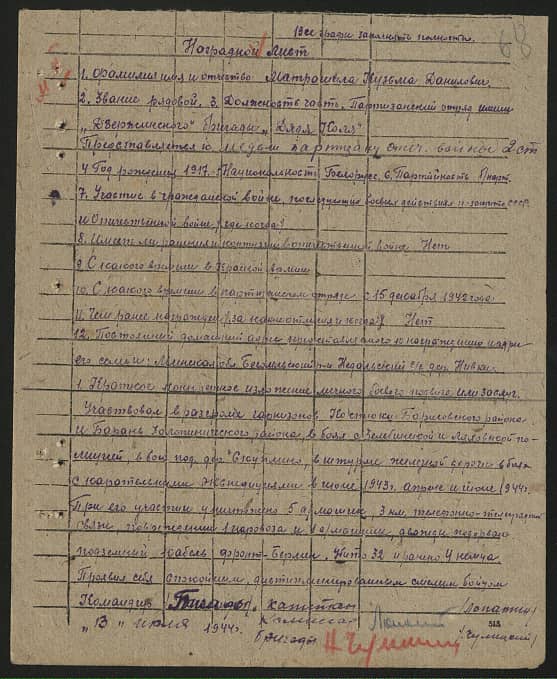 Все графы заполнять полностью.
68
Наградной Лист
1. Фамилия имя и отчество Матрашела Кузьма Данилович
2. Звание рядовой. 3. Должность часть. Партизанский отряд имени
„Дзержинского" бригады „Дядя Коля"
Представляется к медали партизану отеч. войны 2 ст
4. Год рождения 1917. Национальность: Белорус. 6. Партийность
7. Участие в гражданской войне, последующих боевых действиях по защите СССР
и Отечественной войне, где когда?
8. Имеет ли ранения и контузии в отечественной войне Нет
9. С какого времени в Красной армии
10. С какого времени в партизанском отряде с 15 декабря 1942 года
11. Чем ранее награжден (за какие отличия и когда)? Нет
12. Постоянный домашний адрес представляемого к награждению и адрес
его семьи: Минская обл Бегомльский р-н дер. Нивки
1. Краткое конкретное изложение личного боевого подвига или заслуг.
Участвовал в разгроме гарнизонов Костюки Борисовского района
и Барань Холопиничского района, в боях с Зембинской и Ляховской по-
лицией, в бою под дер. в штурме железной дороги в боях
с карательными экспедициями в июне 1943г. апреле и июне 1944г.
При его участии уничтожено 5 а/машин, 3 км. телефонно-телеграфной
связи, повреждении 1 паровоза и 1 а/машины, дважды подорван
подземный кабель фронт-Берлин. Убито 32 и ранено 4 немца.
Проявил себя спокойным, дисциплинированным смелым бойцом
Командир капитан /Лопатин/
„13" июля 1944г. Комиссар
бригады /Чулицкий/
313